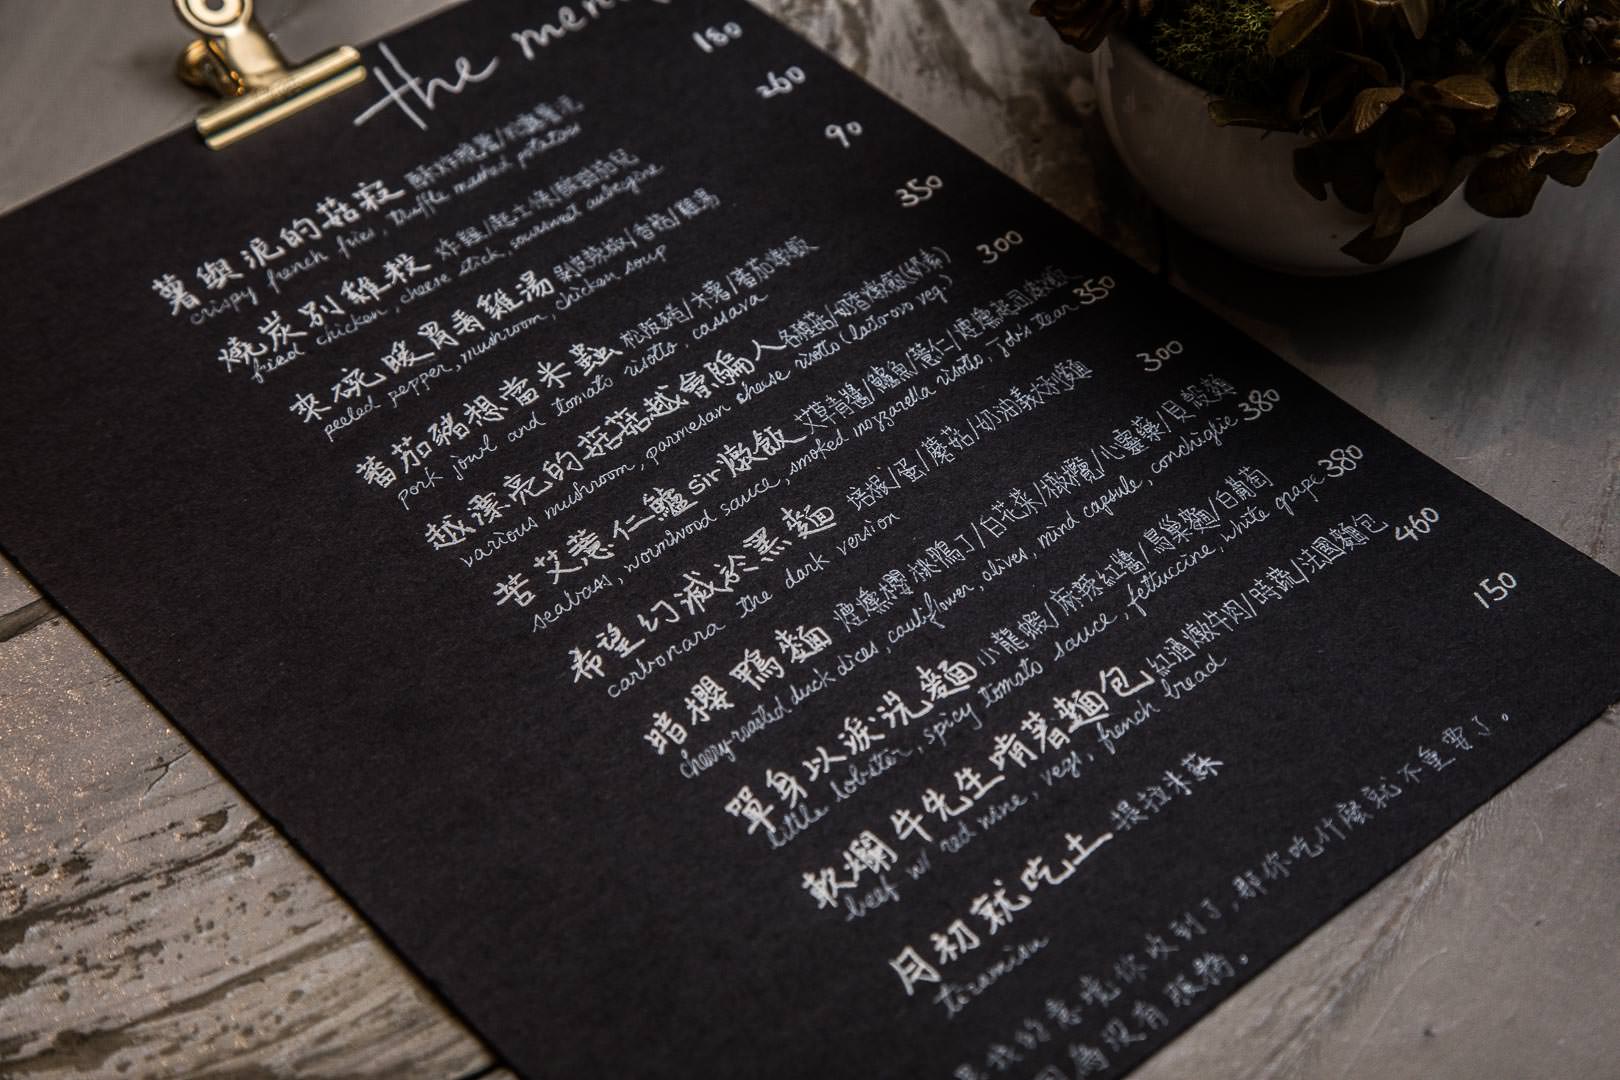 the menu
薯與泥的菇寂 酥炸現薯/松露薯泥 180
crispy french fries, truffle mashed potatoes
燒炭別雞殺 炸雞/起士條/酸甜茄兒 260
fried chicken, cheese stick, sour sweet aubergine
來碗暖胃再雞湯 剝皮辣椒/香菇/雞湯 90
peeled pepper, mushroom, chicken soup
蕃茄豬想當米蟲 松阪豬/木薯/蕃茄燉飯 350
pork jowl and tomato risotto, cassava
越漂亮的菇菇越會騙人 各種菇/奶香燉飯(奶素) 300
various mushroom, parmesan cheese risotto (lacto-ovo veg.)
苦艾薏仁鱸sir燉飯 艾草青醬/鱸魚/薏仁/煙燻起司燉飯 350
seabass, wormwood sauce, smoked mozzarella risotto, job's tear
希望幻滅於黑麵 培根/蛋/蘑菇/奶油義大利麵 300
carbonara the dark version
暗櫻鴨麵 煙燻櫻桃鴨丁/白花菜/橄欖/心靈藥/貝殼麵 380
cherry-roasted duck dices, cauliflower, olives, mind capsule, conchiglie
單身以淚洗麵 小龍蝦/麻辣紅醬/鳥巢麵/白葡萄 380
little lobster, spicy tomato sauce, fettuccine, white grape
軟爛牛先生啃著麵包 紅酒燉牛肉/時蔬/法國麵包 460
beef w/ red wine, vege, french bread
月初就吃土 提拉米蘇 150
tiramisu
我的意境你收到了,那你吃什麼就不重要了。
因為沒有服務。